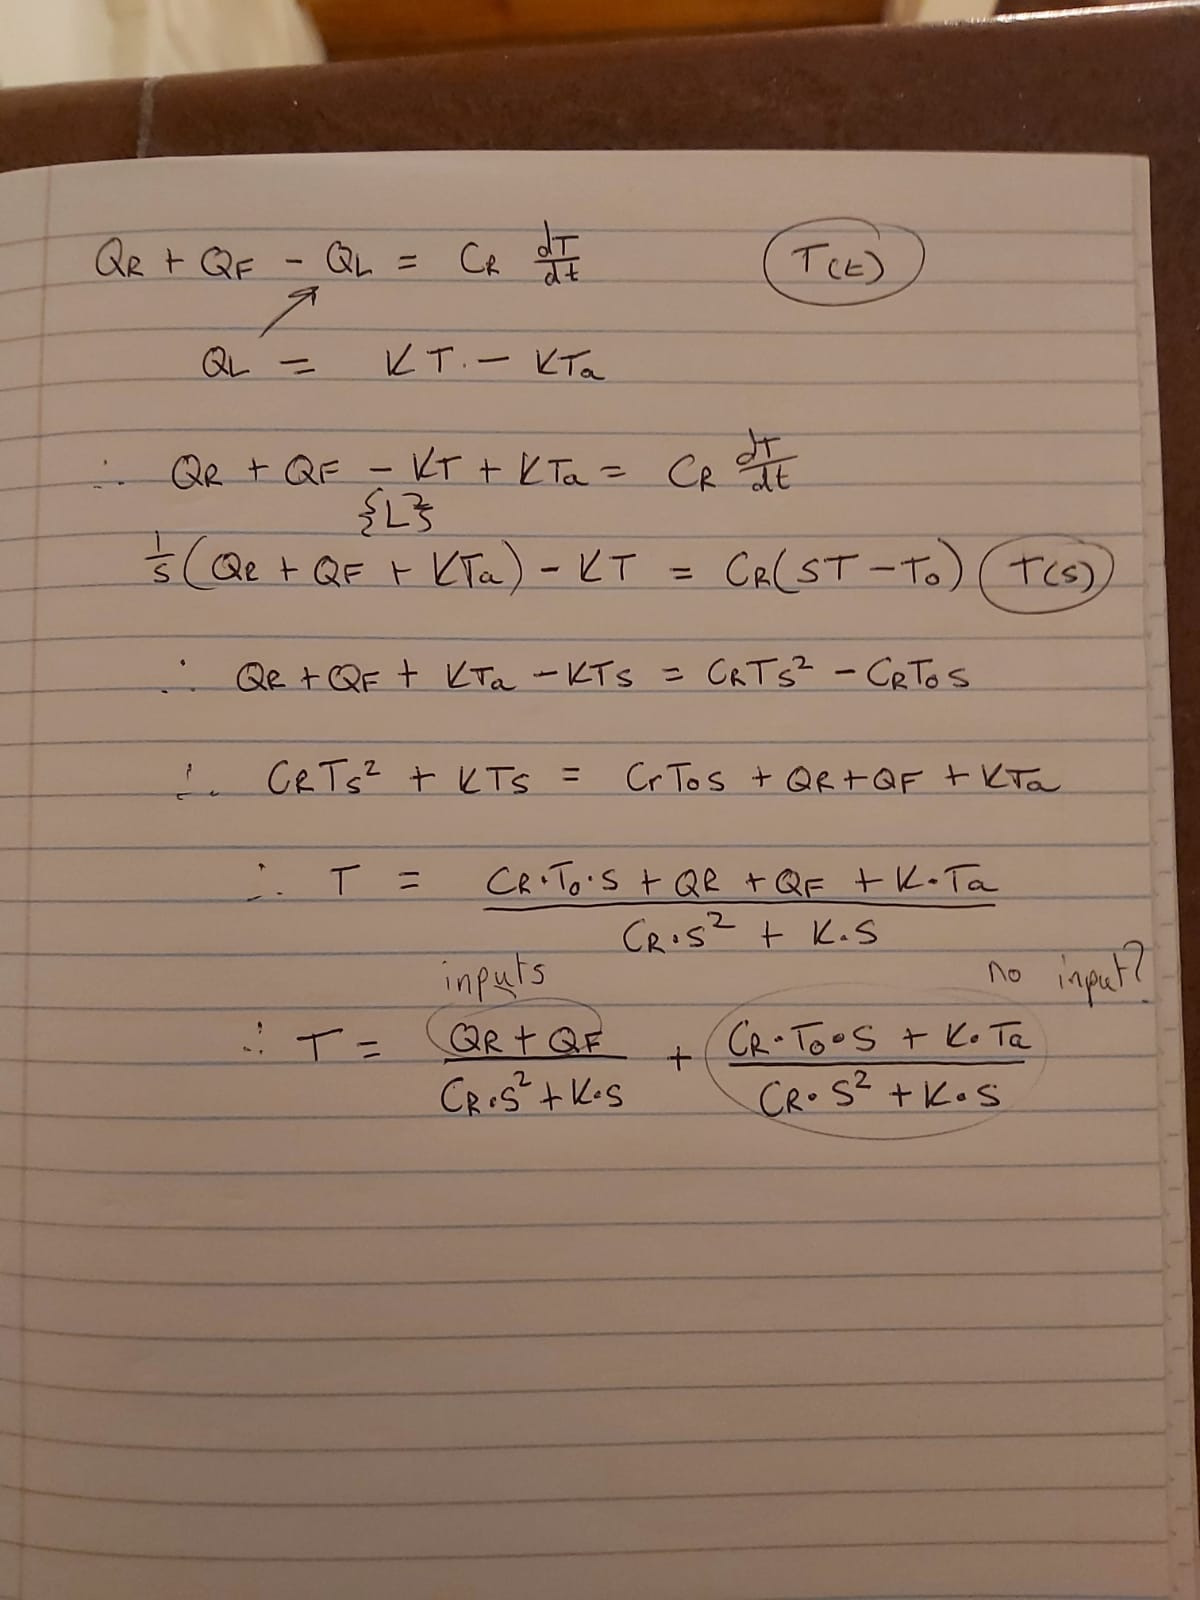 QR + QF - QL = CR dT/dt T(t)
QL = KT - KTa
∴ QR + QF - KT + KTa = CR dT/dt
{L}
1/s (QR + QF + KTa) - KT = CR(ST - To) T(s)
∴ QR + QF + KTa - KTs = CRTs² - CRTos
∴ CRTs² + KTs = CrTos + QR + QF + KTa
∴ T = (CR·To·s + QR + QF + K·Ta) / (CR·s² + K·s)
inputs no input?
∴ T = (QR + QF) / (CR·s² + K·s) + (CR·To·s + K·Ta) / (CR·s² + K·s)